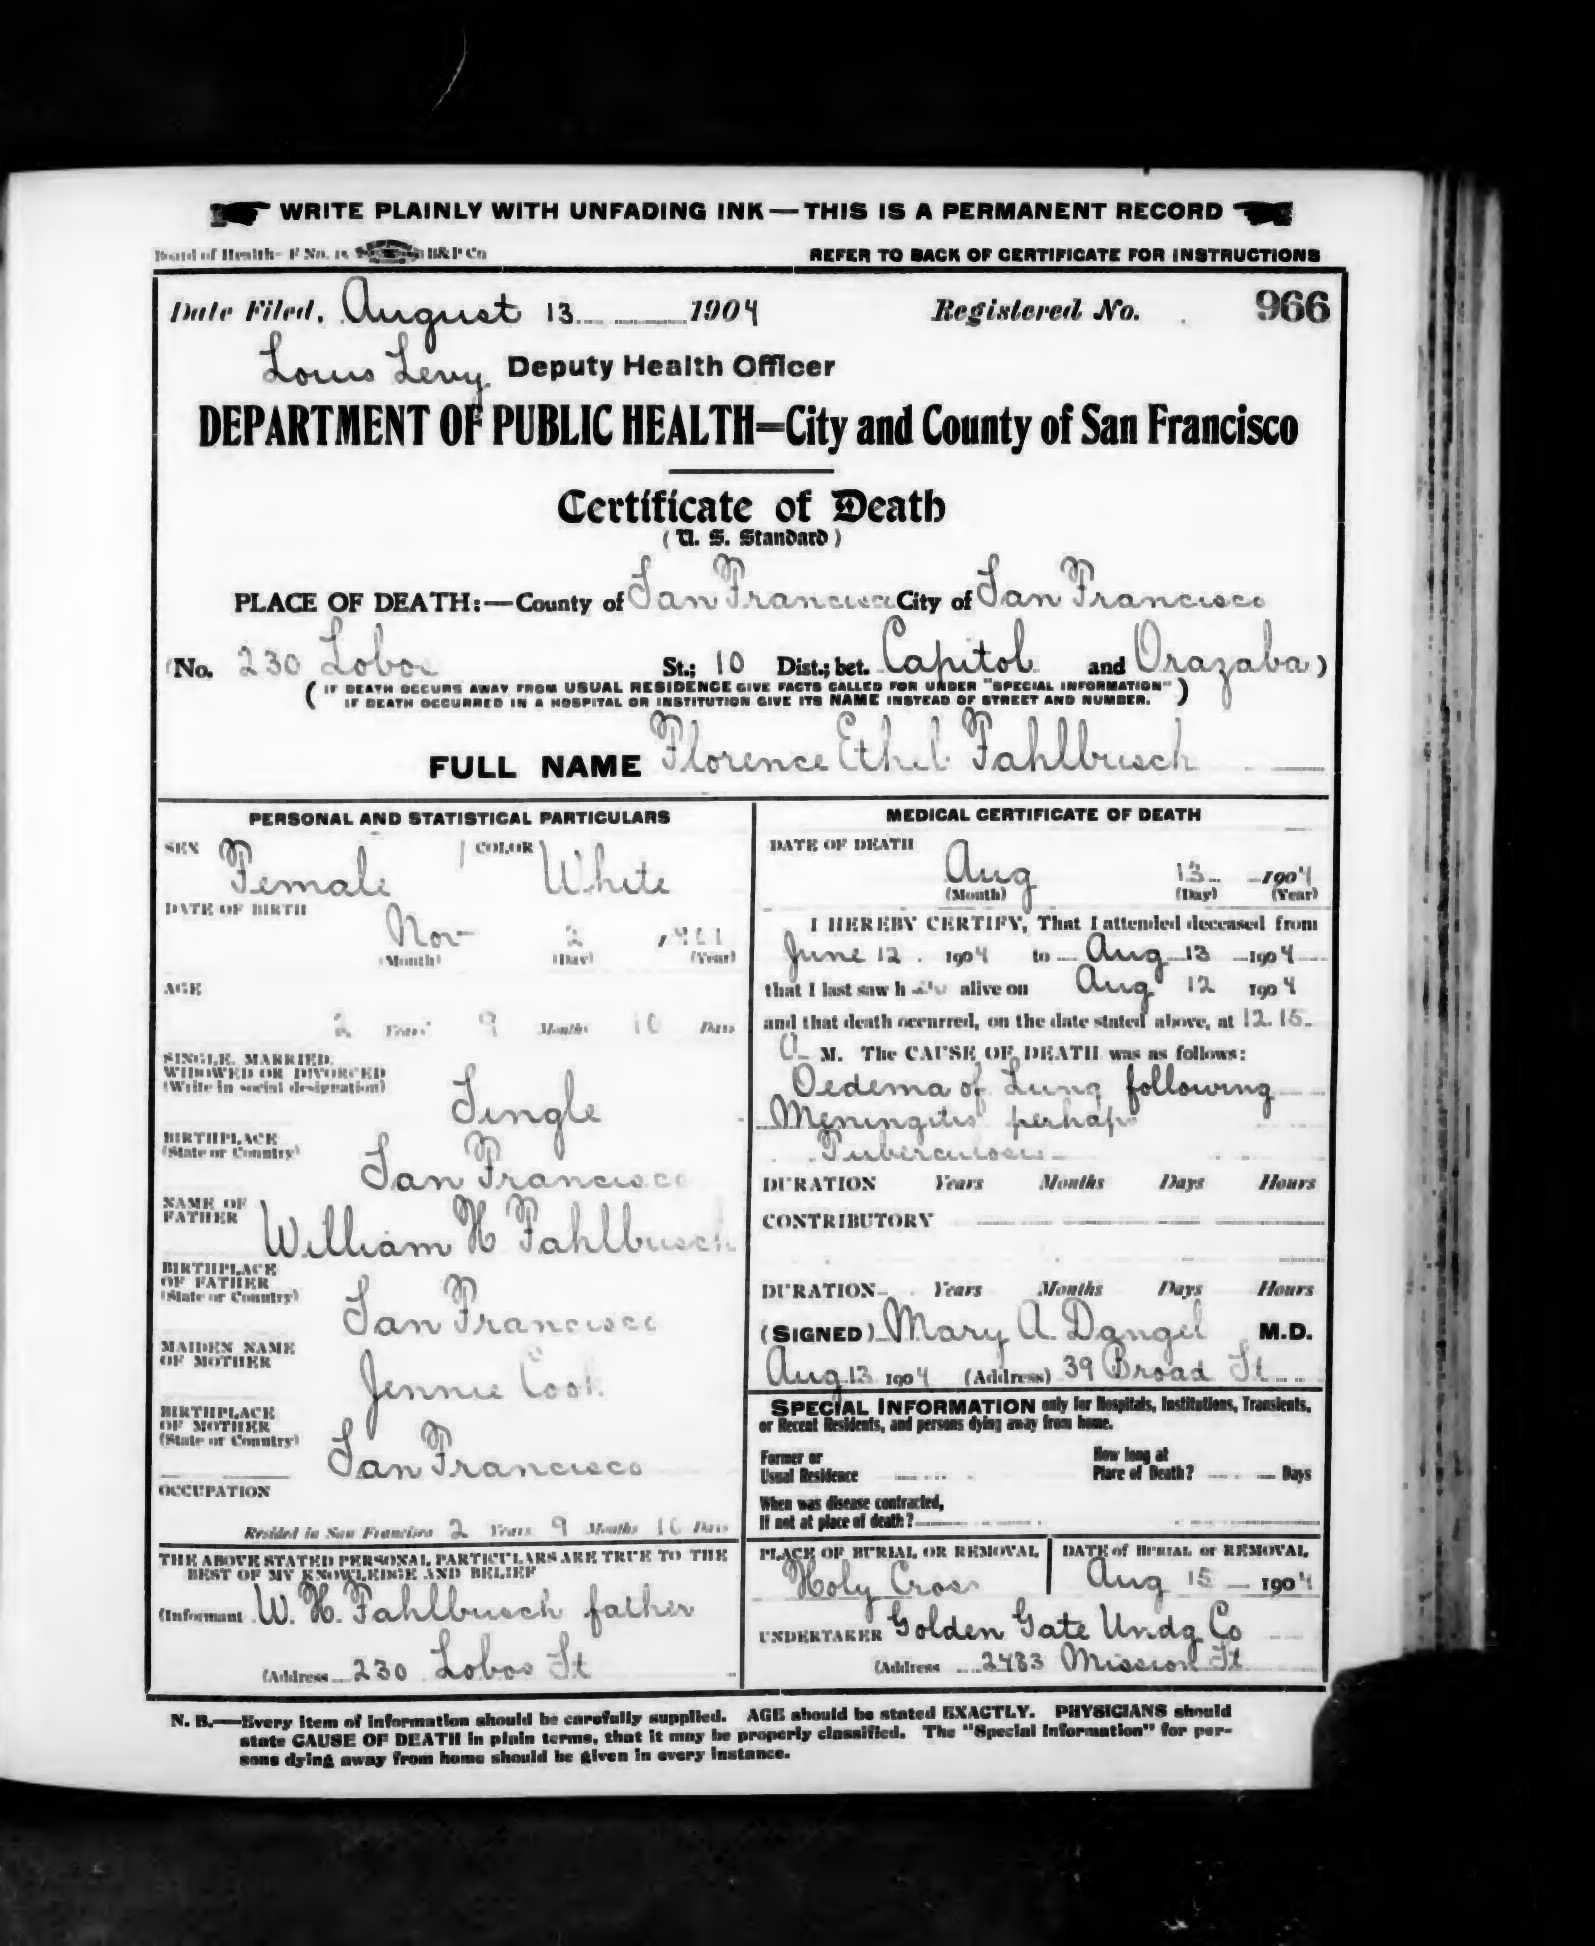 WRITE PLAINLY WITH UNFADING INK—THIS IS A PERMANENT RECORD
Board of Health—F No. 15 B&P Co
REFER TO BACK OF CERTIFICATE FOR INSTRUCTIONS
Date Filed, August 13 1904 Registered No. 966
Louis Levy. Deputy Health Officer
DEPARTMENT OF PUBLIC HEALTH=City and County of San Francisco
Certificate of Death
(U. S. Standard)
PLACE OF DEATH:—County of San Francisco City of San Francisco
(No. 230 Lobos St.; 10 Dist.; bet. Capitol and Orazaba)
(IF DEATH OCCURS AWAY FROM USUAL RESIDENCE GIVE FACTS CALLED FOR UNDER "SPECIAL INFORMATION"
IF DEATH OCCURRED IN A HOSPITAL OR INSTITUTION GIVE ITS NAME INSTEAD OF STREET AND NUMBER.)
FULL NAME Florence Ethel Fahlbusch
PERSONAL AND STATISTICAL PARTICULARS
SEX Female COLOR White
DATE OF BIRTH
Nov 2 1901
(Month) (Day) (Year)
AGE
2 Years 9 Months 10 Days
SINGLE, MARRIED,
WIDOWED OR DIVORCED
(Write in social designation)
Single
BIRTHPLACE
(State or Country)
San Francisco
NAME OF
FATHER
William H Fahlbusch
BIRTHPLACE
OF FATHER
(State or Country)
San Francisco
MAIDEN NAME
OF MOTHER
Jennie Cook
BIRTHPLACE
OF MOTHER
(State or Country)
San Francisco
OCCUPATION
Resided in San Francisco 2 Years 9 Months 10 Days
THE ABOVE STATED PERSONAL PARTICULARS ARE TRUE TO THE
BEST OF MY KNOWLEDGE AND BELIEF
(Informant W. H. Fahlbusch father
(Address 230 Lobos St
MEDICAL CERTIFICATE OF DEATH
DATE OF DEATH
Aug 13 1904
(Month) (Day) (Year)
I HEREBY CERTIFY, That I attended deceased from
June 12 1904 to Aug 13 1904
that I last saw h alive on Aug 12 1904
and that death occurred, on the date stated above, at 12.15.
A M. The CAUSE OF DEATH was as follows:
Oedema of Lung following
Meningitis perhaps
Tuberculosis
DURATION Years Months Days Hours
CONTRIBUTORY
DURATION Years Months Days Hours
(SIGNED) Mary A. Dangel M.D.
Aug 13 1904 (Address) 39 Broad St
SPECIAL INFORMATION only for Hospitals, Institutions, Transients,
or Recent Residents, and persons dying away from home.
Former or
Usual Residence
How long at
Place of Death? Days
When was disease contracted,
If not at place of death?
PLACE OF BURIAL OR REMOVAL
Holy Cross
DATE of BURIAL or REMOVAL
Aug 15 1904
UNDERTAKER Golden Gate Undg Co
(Address 2483 Mission St
N. B.—Every item of information should be carefully supplied. AGE should be stated EXACTLY. PHYSICIANS should
state CAUSE OF DEATH in plain terms, that it may be properly classified. The "Special Information" for per-
sons dying away from home should be given in every instance.